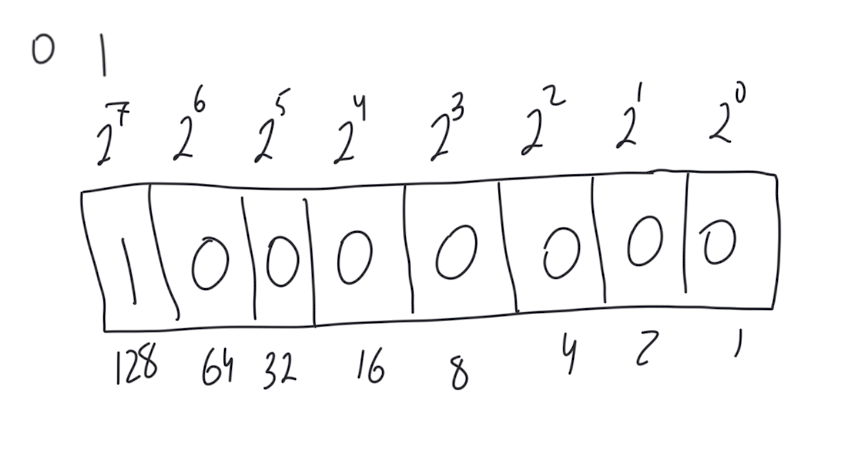 0 1
2⁷ 2⁶ 2⁵ 2⁴ 2³ 2² 2¹ 2⁰
1 0 0 0 0 0 0 0
128 64 32 16 8 4 2 1